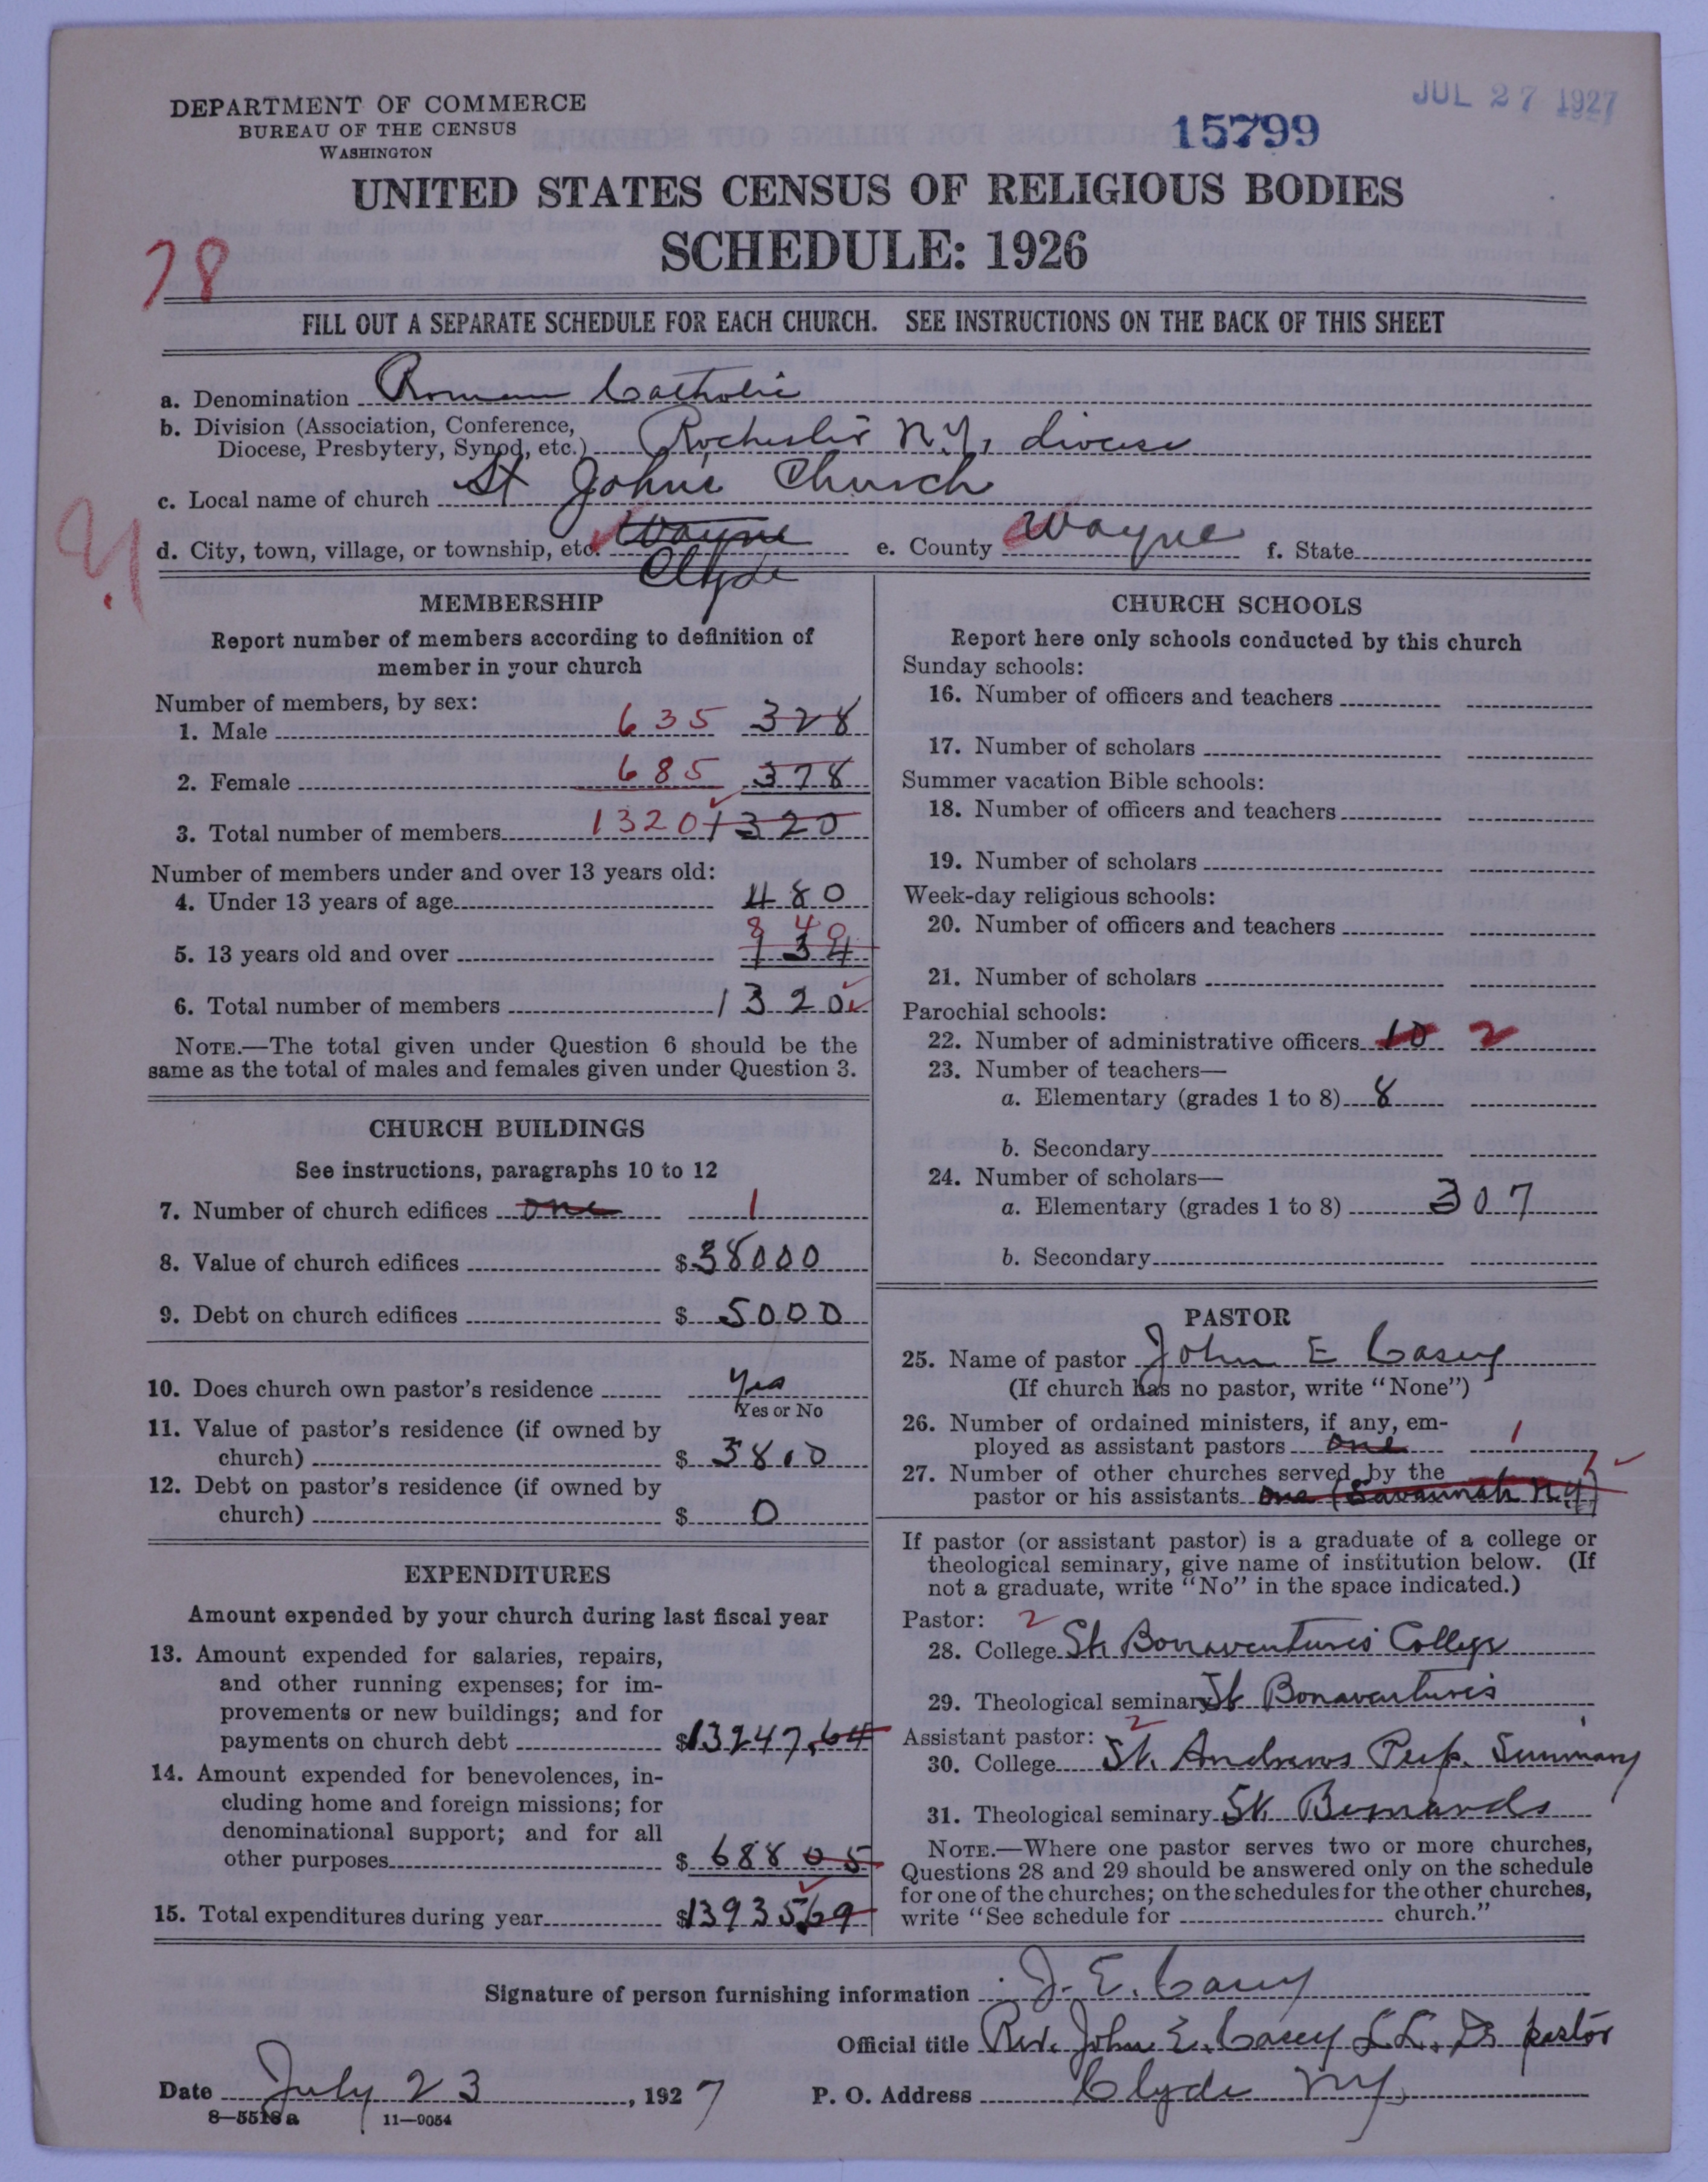 DEPARTMENT OF COMMERCE
BUREAU OF THE CENSUS
WASHINGTON
JUL 27 1927
15799
UNITED STATES CENSUS OF RELIGIOUS BODIES
SCHEDULE: 1926
78
FILL OUT A SEPARATE SCHEDULE FOR EACH CHURCH. SEE INSTRUCTIONS ON THE BACK OF THIS SHEET
a. Denomination Roman Catholic
b. Division (Association, Conference,
Diocese, Presbytery, Synod, etc.) Rochester N.Y. diocese
c. Local name of church St John's Church
d. City, town, village, or township, etc. Wayne e. County Wayne f. State
Clyde
MEMBERSHIP
Report number of members according to definition of
member in your church
Number of members, by sex:
1. Male 635 328
2. Female 685 378
3. Total number of members 1320 1320
Number of members under and over 13 years old:
4. Under 13 years of age 480
840
5. 13 years old and over 134
6. Total number of members 1320
NOTE.—The total given under Question 6 should be the
same as the total of males and females given under Question 3.
CHURCH BUILDINGS
See instructions, paragraphs 10 to 12
7. Number of church edifices one 1
8. Value of church edifices $ 38000
9. Debt on church edifices $ 5000
10. Does church own pastor's residence Yes
Yes or No
11. Value of pastor's residence (if owned by
church) $ 3800
12. Debt on pastor's residence (if owned by
church) $ 0
EXPENDITURES
Amount expended by your church during last fiscal year
13. Amount expended for salaries, repairs,
and other running expenses; for im-
provements or new buildings; and for
payments on church debt $ 13247.64
14. Amount expended for benevolences, in-
cluding home and foreign missions; for
denominational support; and for all
other purposes $ 688 05
15. Total expenditures during year $ 13935.69
CHURCH SCHOOLS
Report here only schools conducted by this church
Sunday schools:
16. Number of officers and teachers
17. Number of scholars
Summer vacation Bible schools:
18. Number of officers and teachers
19. Number of scholars
Week-day religious schools:
20. Number of officers and teachers
21. Number of scholars
Parochial schools:
22. Number of administrative officers 10 2
23. Number of teachers—
a. Elementary (grades 1 to 8) 8
b. Secondary
24. Number of scholars—
a. Elementary (grades 1 to 8) 307
b. Secondary
PASTOR
25. Name of pastor John E Casey
(If church has no pastor, write "None")
26. Number of ordained ministers, if any, em-
ployed as assistant pastors one 1
27. Number of other churches served by the 1
pastor or his assistants one (Savannah N.Y.)
If pastor (or assistant pastor) is a graduate of a college or
theological seminary, give name of institution below. (If
not a graduate, write "No" in the space indicated.)
Pastor: 2
28. College St. Bonaventures College
29. Theological seminary St Bonaventures
Assistant pastor: 2
30. College St. Andrews Prep. Seminary
31. Theological seminary St. Bernards
NOTE.—Where one pastor serves two or more churches,
Questions 28 and 29 should be answered only on the schedule
for one of the churches; on the schedules for the other churches,
write "See schedule for church."
Signature of person furnishing information J. E. Casey
Official title Rev. John E. Casey LL. D. pastor
Date July 23, 1927 P. O. Address Clyde N.Y.
8—5518 a 11—9054